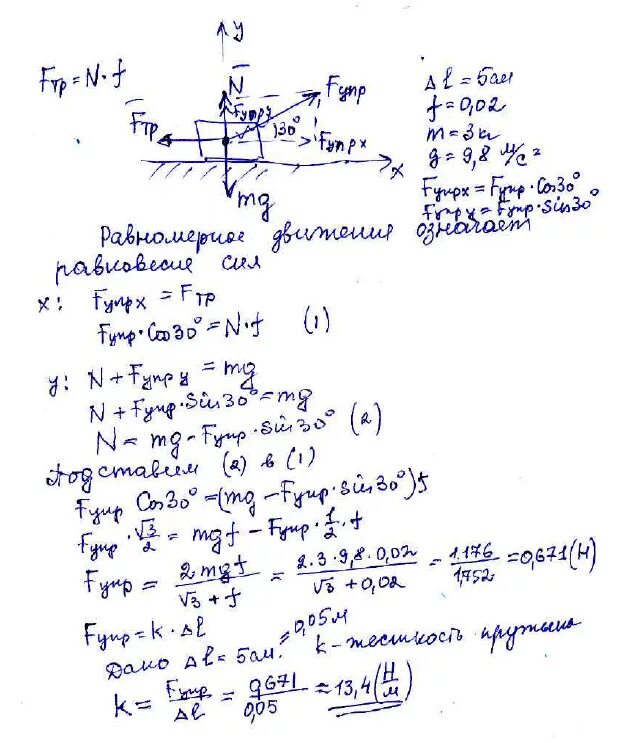 y
Fтр = N·f
N
Fупр
Fупр y
Fтр
30°
Fупр x
x
mg
Δl = 5см
f = 0,02
m = 3кг
g = 9,8 м/с²
Fупрx = Fупр·Cos30°
Fупр y = Fупр·sin30°
Равномерное движение означает
равновесие сил
x: Fупрx = Fтр
Fупр·Cos30° = N·f (1)
y: N + Fупр y = mg
N + Fупр·sin30° = mg
N = mg - Fупр·sin30° (2)
Подставим (2) в (1)
Fупр Cos30° = (mg - Fупр·sin30°)f
Fупр·√3/2 = mgf - Fупр·1/2·f
Fупр = 2mgf/(√3 + f) = 2·3·9,8·0,02/(√3 + 0,02) = 1.176/1,752 = 0,671(Н)
Fупр = k·Δl
Дано Δl = 5см = 0,05м k - жесткость пружины
k = Fупр/Δl = 0,671/0,05 ≈ 13,4 (Н/м)